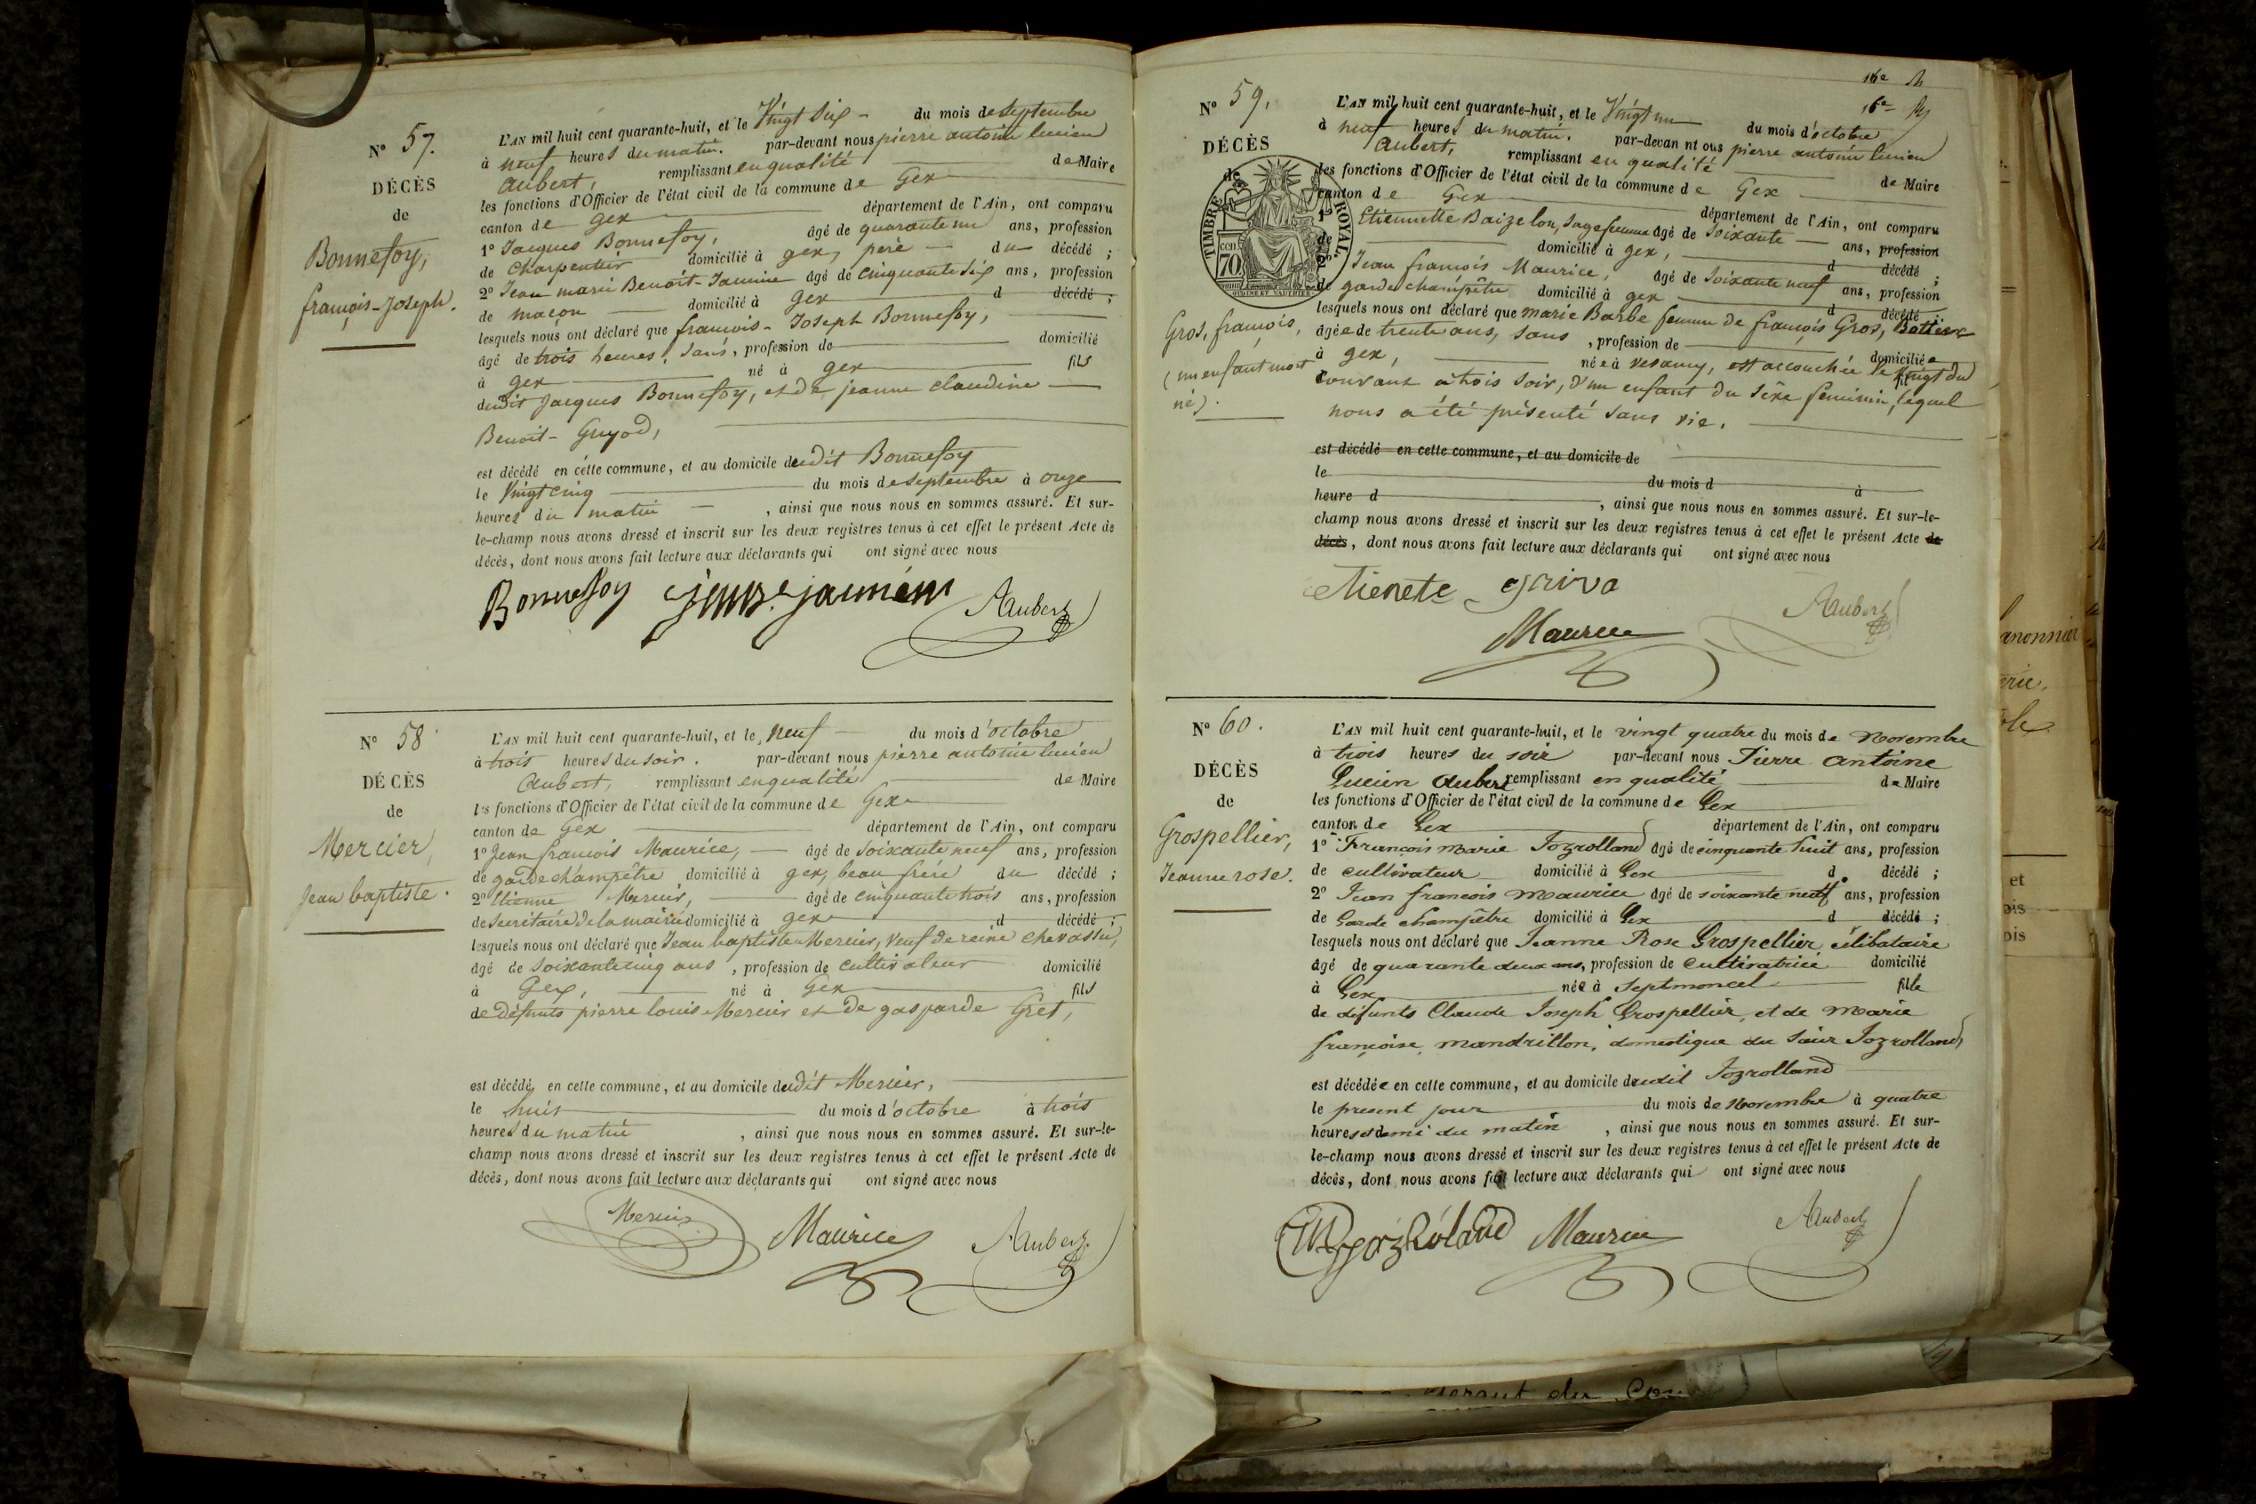 N° 57.
DÉCÈS
de
Bonnefoy,
françois-Joseph.
L'AN mil huit cent quarante-huit, et le Vingt Six du mois de Septembre
à neuf heures du matin. par-devant nous pierre antoine lucien
Aubert, remplissant en qualité de Maire
les fonctions d'Officier de l'état civil de la commune de Gex
canton de Gex département de l'Ain, ont comparu
1° Jacques Bonnefoy, âgé de quarante un ans, profession
de Charpentier domicilié à gex, père du décédé ;
2° Jean marie Benoît-Jannin âgé de cinquante Six ans, profession
de maçon domicilié à gex d décédé ;
lesquels nous ont déclaré que françois-Joseph Bonnefoy,
âgé de trois heures, sans, profession de domicilié
à gex né à gex fils
dudit Jacques Bonnefoy, et de jeanne claudine
Benoit-Guyod,
est décédé en cette commune, et au domicile dudit Bonnefoy
le Vingt cinq du mois de Septembre à onze
heures du matin , ainsi que nous nous en sommes assuré. Et sur-
le-champ nous avons dressé et inscrit sur les deux registres tenus à cet effet le présent Acte de
décès, dont nous avons fait lecture aux déclarants qui ont signé avec nous
Bonnefoy
Aubert
N° 58
DÉCÈS
de
Mercier,
Jean baptiste.
L'AN mil huit cent quarante-huit, et le neuf du mois d'octobre
à trois heures du soir. par-devant nous pierre antoine lucien
Aubert, remplissant en qualité de Maire
les fonctions d'Officier de l'état civil de la commune de Gex
canton de Gex département de l'Ain, ont comparu
1° Jean françois Maurice, âgé de Soixante neuf ans, profession
de garde champêtre domicilié à gex, beau frère du décédé ;
2° Etienne Mercier, âgé de cinquante trois ans, profession
de Secrétaire de la mairie domicilié à gex d décédé ;
lesquels nous ont déclaré que Jean baptiste Mercier, veuf de reine chevassu,
âgé de Soixante cinq ans , profession de cultivateur domicilié
à Gex, né à Gex fils
de défunts pierre louis Mercier et de gasparde Gret,
est décédé en cette commune, et au domicile dudit Mercier,
le huit du mois d'octobre à trois
heures du matin , ainsi que nous nous en sommes assuré. Et sur-le-
champ nous avons dressé et inscrit sur les deux registres tenus à cet effet le présent Acte de
décès, dont nous avons fait lecture aux déclarants qui ont signé avec nous
Mercier Maurice Aubert
16e
16e
N° 59.
DÉCÈS
de
TIMBRE ROYAL
CEN 70
Gros, françois,
(un enfant mort
né).
L'AN mil huit cent quarante-huit, et le Vingt un du mois d'octobre
à neuf heures du matin. par-devant nous pierre antoine lucien
Aubert, remplissant en qualité de Maire
les fonctions d'Officier de l'état civil de la commune de Gex
canton de Gex département de l'Ain, ont comparu
1° Etiennette Baizelon, Sage femme âgé de Soixante ans, profession
de domicilié à gex, d décédé ;
2° Jean françois Maurice, âgé de Soixante neuf ans, profession
de garde champêtre domicilié à gex d décédé ;
lesquels nous ont déclaré que marie Barbe femme de françois Gros, Battier
âgée de trente ans, sans , profession de domiciliée
à gex, née à vesancy, est accouchée le vingt du
courant à trois soir, d'un enfant du Sexe féminin, lequel
nous a été présenté sans vie.
est décédé en cette commune, et au domicile de
le du mois d à
heure d , ainsi que nous nous en sommes assuré. Et sur-le-
champ nous avons dressé et inscrit sur les deux registres tenus à cet effet le présent Acte de
décès, dont nous avons fait lecture aux déclarants qui ont signé avec nous
etienete griva
Maurice Aubert
N° 60.
DÉCÈS
de
Grospellier,
Jeanne rose.
L'AN mil huit cent quarante-huit, et le vingt quatre du mois de Novembre
à trois heures du soir par-devant nous Pierre Antoine
Lucien Aubert remplissant en qualité de Maire
les fonctions d'Officier de l'état civil de la commune de Gex
canton de Gex département de l'Ain, ont comparu
1° François Marie Jozrolland âgé de cinquante huit ans, profession
de cultivateur domicilié à Gex d décédé ;
2° Jean françois Maurice âgé de soixante neuf ans, profession
de Garde champêtre domicilié à Gex d décédé ;
lesquels nous ont déclaré que Jeanne Rose Grospellier célibataire
âgé de quarante deux ans, profession de cultivatrice domicilié
à Gex née à Septmoncel fille
de défunts Claude Joseph Grospellier, et de Marie
françoise Mandrillon, domestique du Sieur Jozrolland
est décédée en cette commune, et au domicile dudit Jozrolland
le present jour du mois de Novembre à quatre
heures et demi du matin , ainsi que nous nous en sommes assuré. Et sur-
le-champ nous avons dressé et inscrit sur les deux registres tenus à cet effet le présent Acte de
décès, dont nous avons fait lecture aux déclarants qui ont signé avec nous
Maurice Aubert
et
ois
ois